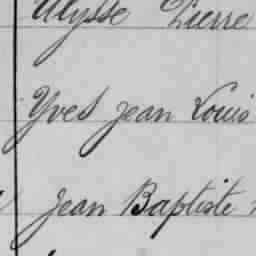 Ulysse Pierre
Yves Jean Louis
Jean Baptiste